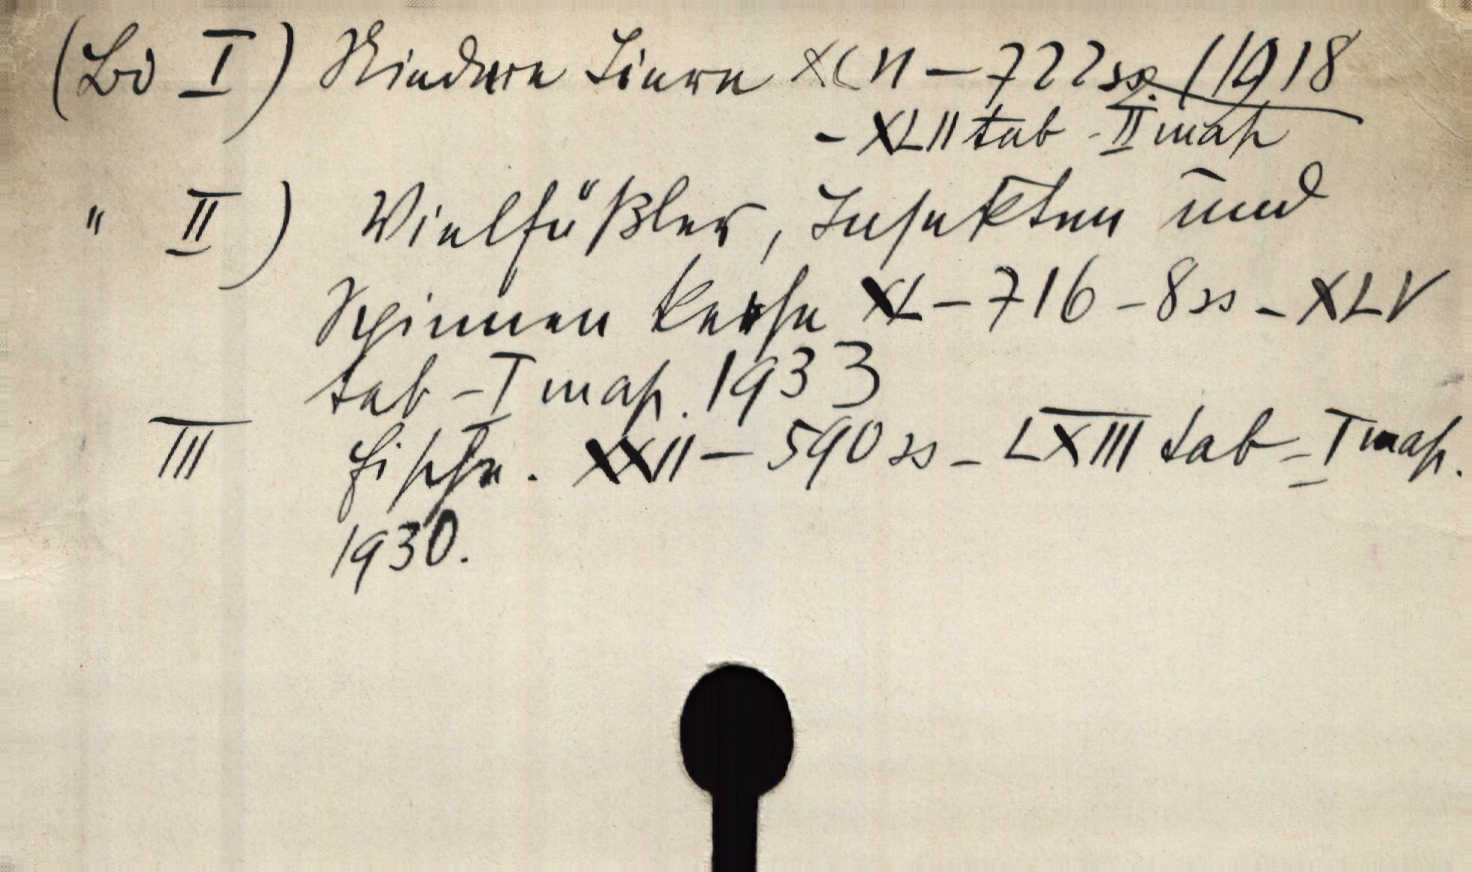 (Bd I) Niedere Tiere XCII – 722 ss. / 1918
– XLII tab – II map
" II) Vielfüßler, Insekten und
Spinnenkerfe XL – 716 – 8 ss – XLV
tab – I map. 1933
III Fische. XXII – 590 ss – LXIII tab – I map.
1930.